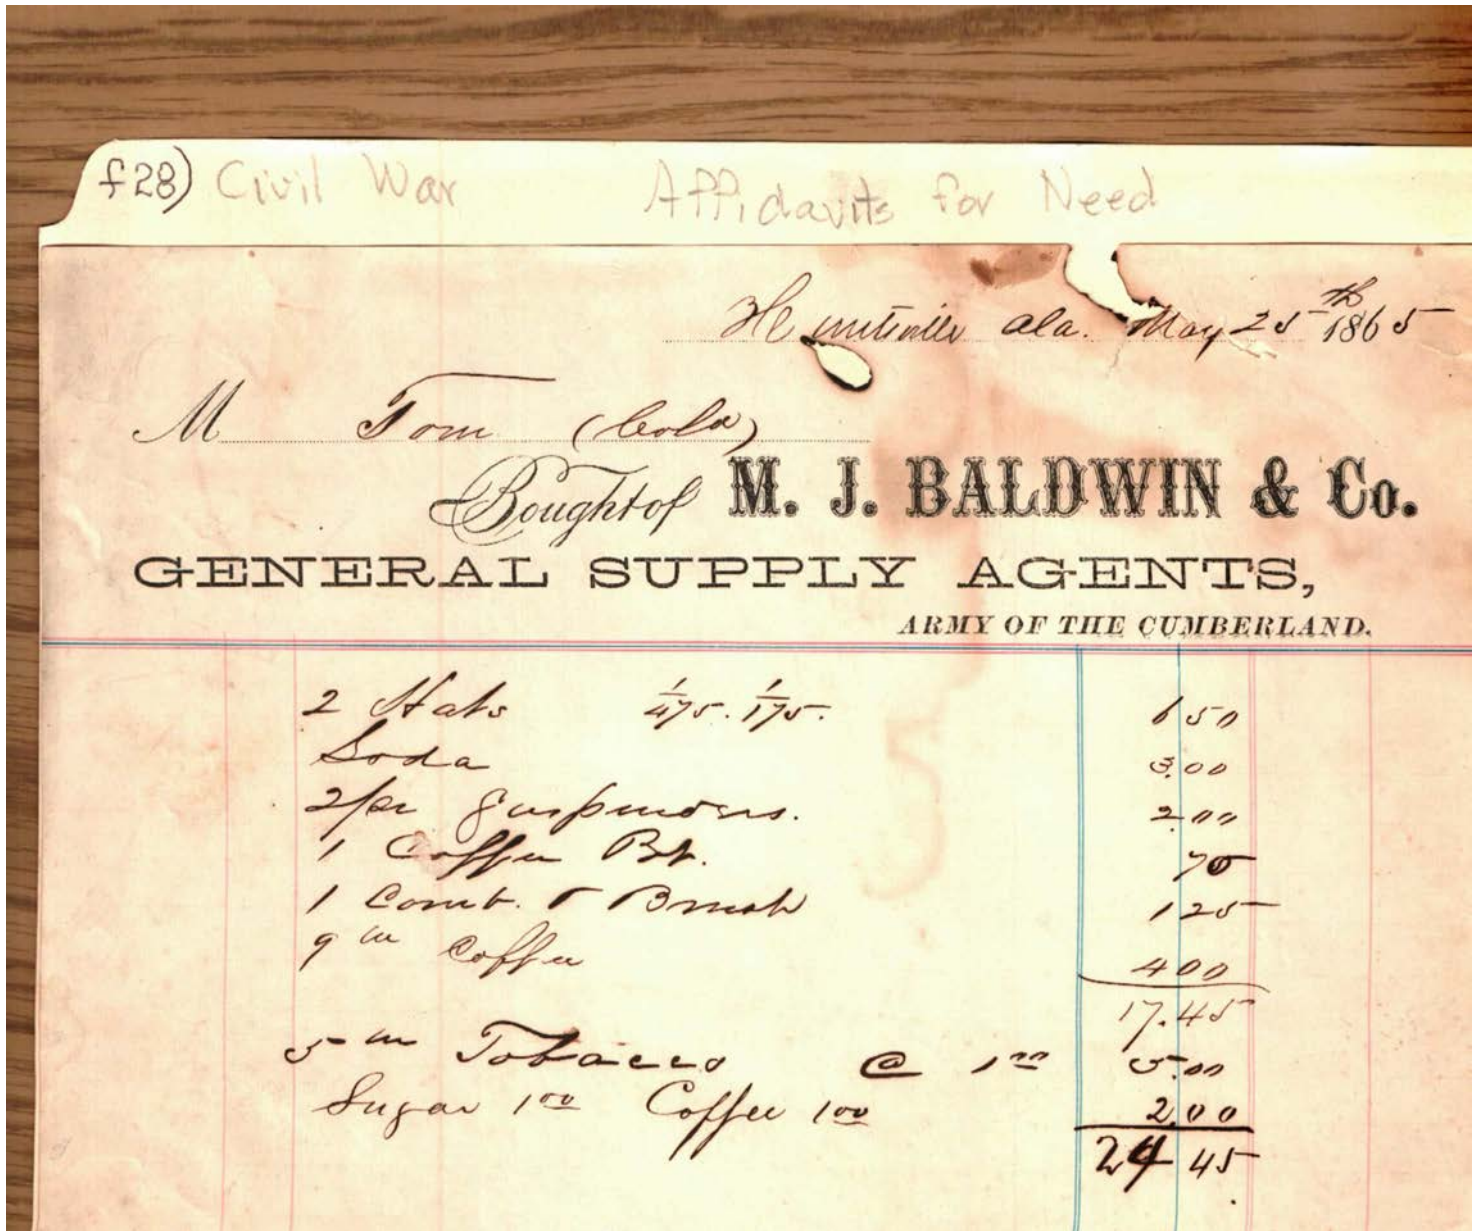 f28) Civil War Affidavits for Need
Huntsville Ala. May 25th 1865
M Tom (Cold)
Bought of M. J. BALDWIN & Co.
GENERAL SUPPLY AGENTS,
ARMY OF THE CUMBERLAND.
2 Hats 1/475. 1/175. 6 50
Soda 3.00
2/pr Suspenders. 2.00
1 Coffee Pot. 70
1 Comb. & Brush 1 25
9 Coffee 4 00
17.45
5 Tobacco @ 1 00 5.00
Sugar 1 00 Coffee 1 00 2.00
24 45